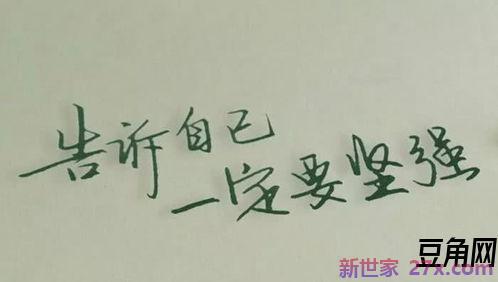 告诉自己
一定要坚强
豆角网
新世家 27x.com